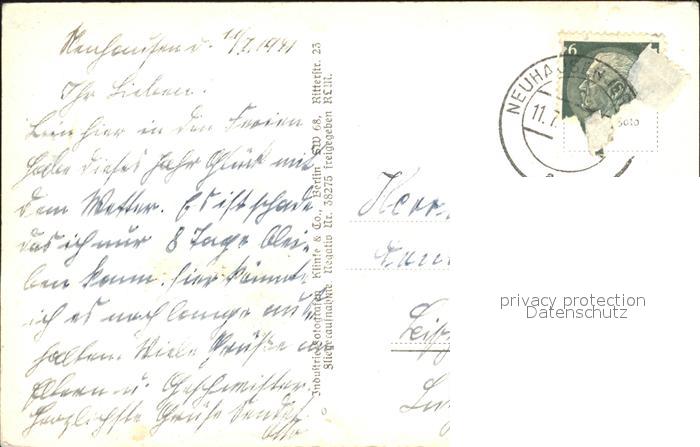 Neuhausen d. 11/7.1941
Ihr Lieben!
Bin hier in den Ferien
habe dieses Jahr Glück mit
dem Wetter. Es ist schade
das ich nur 8 Tage blei-
ben kann. hier könnte
ich es noch lange aus-
halten. Viele Grüße an
Eltern u. Geschwister.
Herzlichste Grüße sendet
Otto
Industrie-Fotografen Klinke & Co., Berlin SW 68, Ritterstr. 23
Fliegeraufnahme Negativ Nr. 38275 freigegeben RLM.
6
NEUHAUSEN
11.7.
Herr
Leipz
privacy protection
Datenschutz